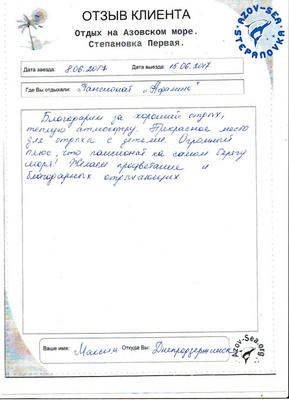 ОТЗЫВ КЛИЕНТА
Отдых на Азовском море.
Степановка Первая.
AZOV-SEA
STEPANOVKA
Дата заезда: 8.06.2017 Дата выезда: 15.06.2017
Где Вы отдыхали: Пансионат "Адамина"
Благодарим за хороший отдых,
теплую атмосферу. Прекрасное место
для отдыха с детьми. Огромный
плюс, что пансионат на самом берегу
моря! Желаем процветания и
благодарных отдыхающих.
Ваше имя: Максим Откуда Вы: Днепродзержинск
Azov-Sea.org